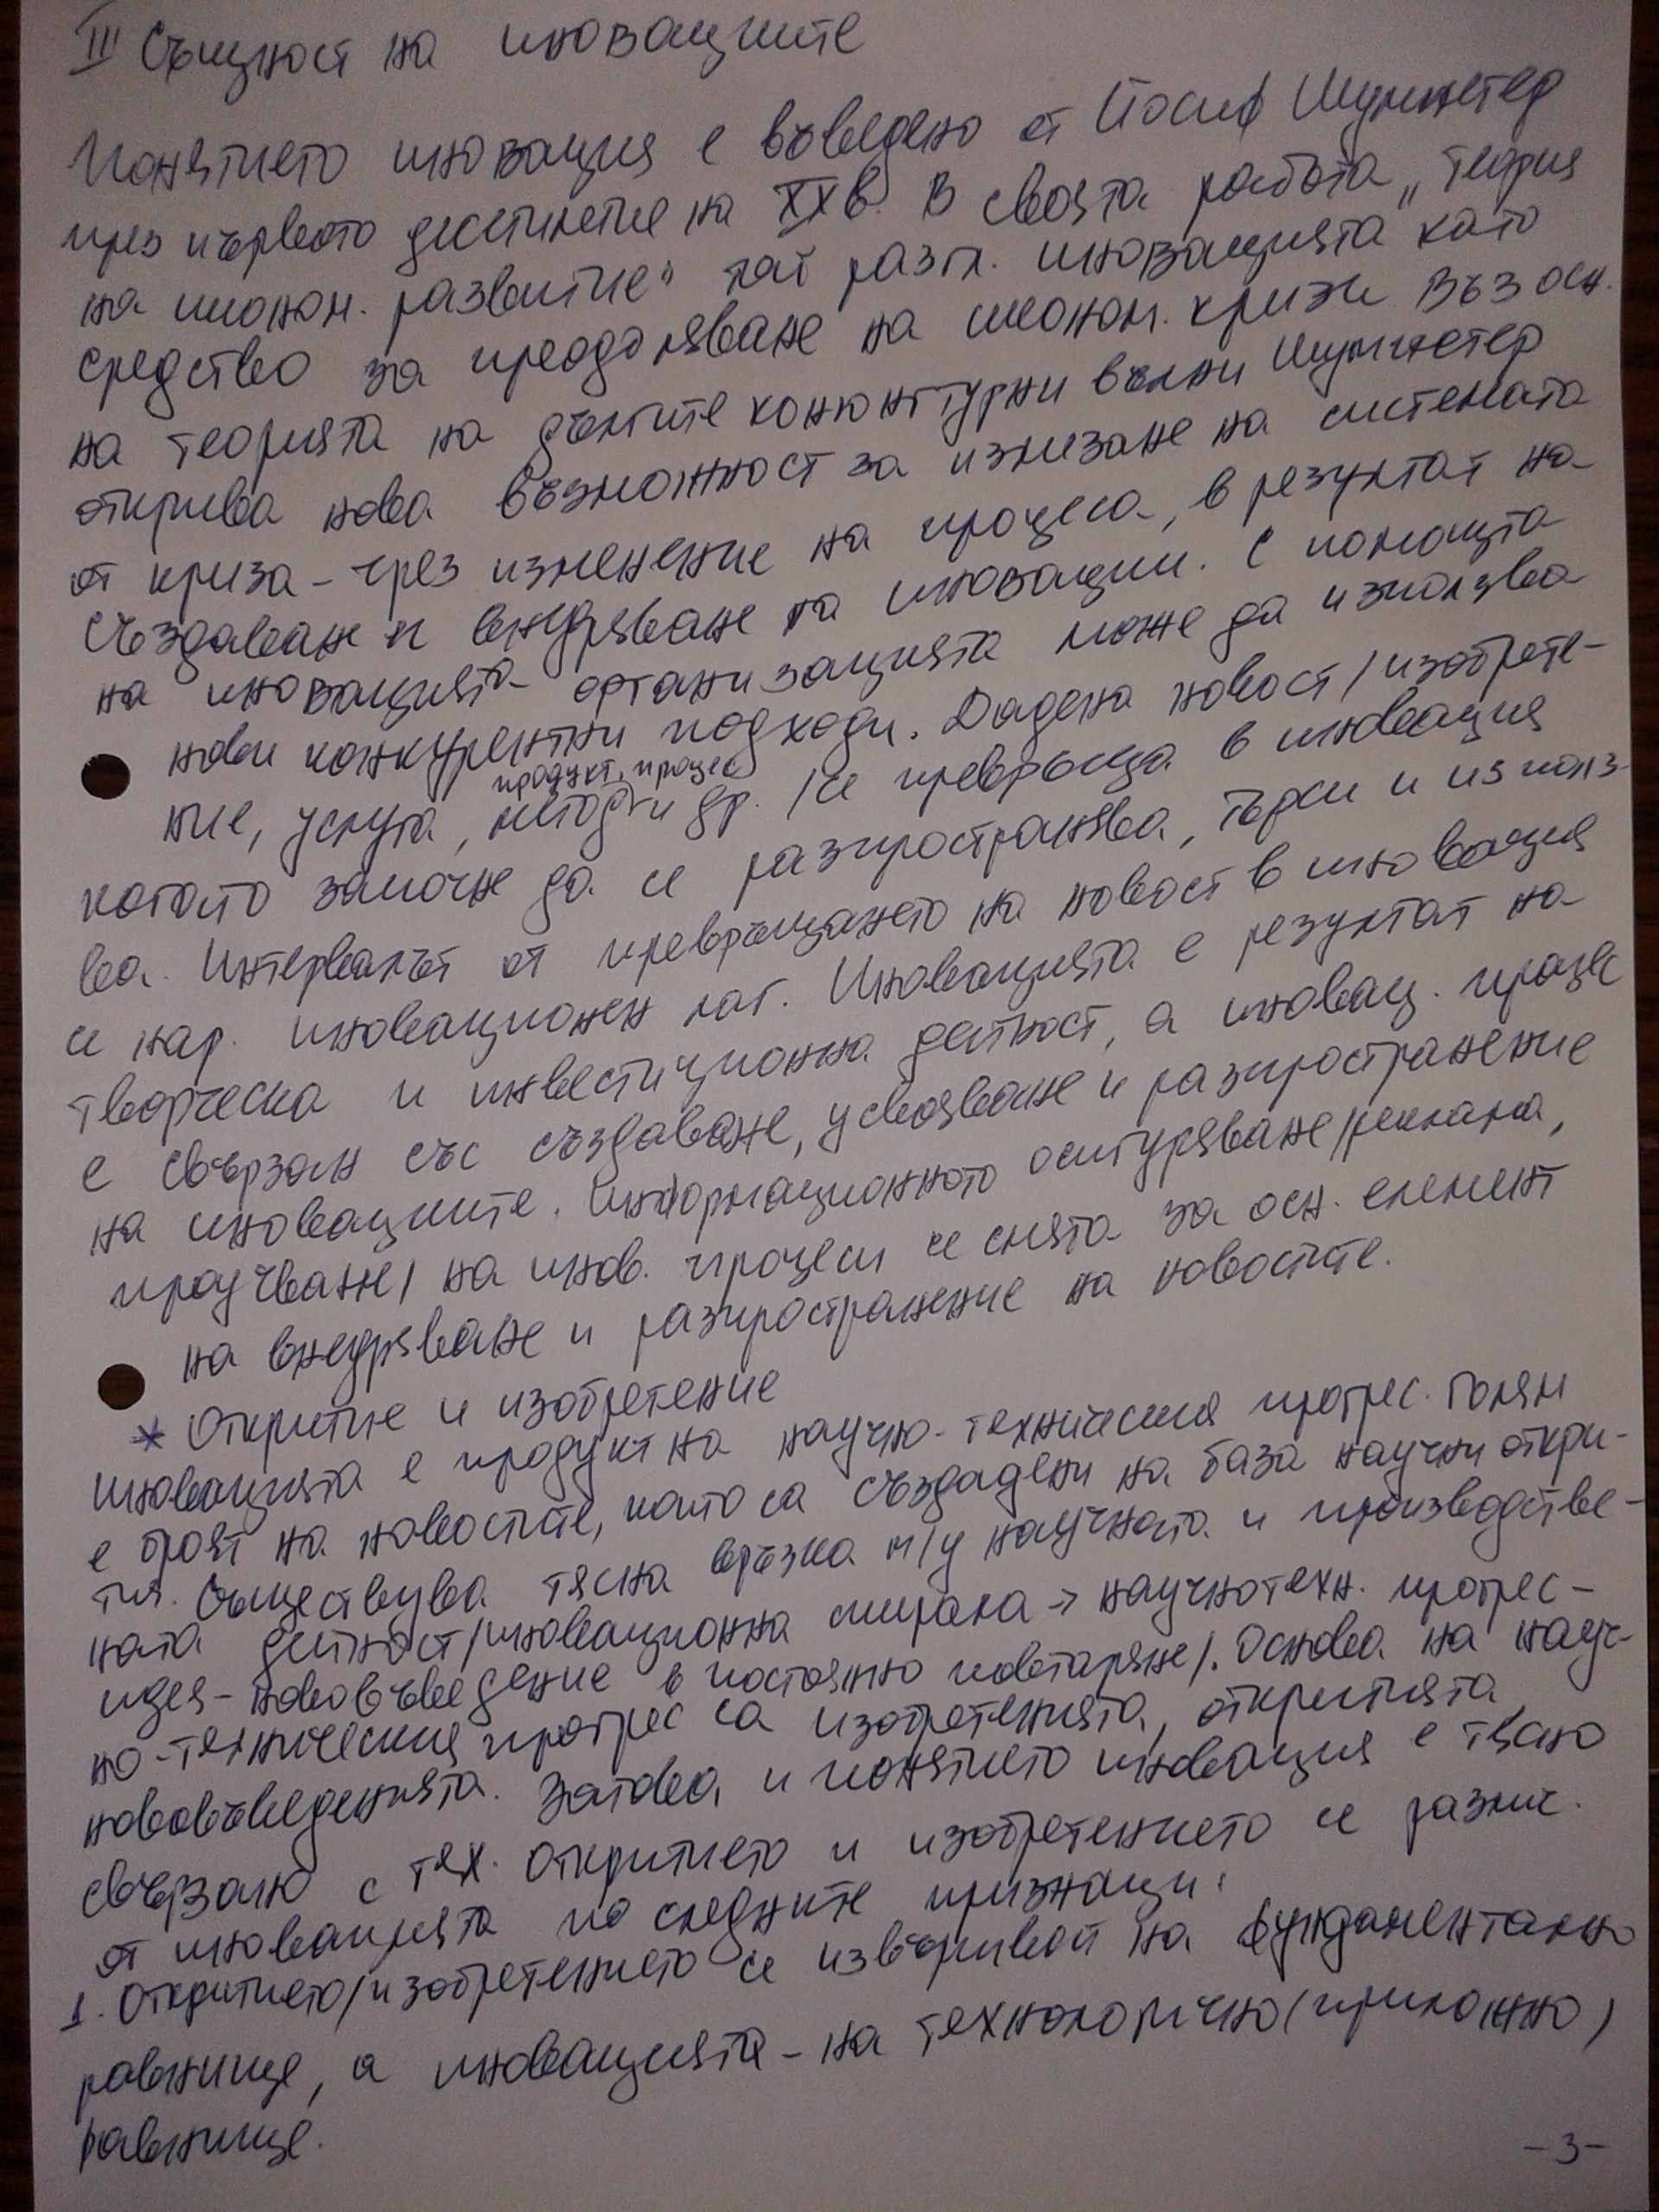 III Същност на иновациите
Понятието иновация е въведено от Йосиф Шумпетер
през първото десетилетие на XX в. В своята работа „Теория
на иконом. развитие“ той разгл. иновацията като
средство за преодоляване на иконом. кризи. Въз осн.
на теорията на дългите конюнктурни вълни Шумпетер
открива нова възможност за излизане на системата
от криза – чрез изменение на процеса, в резултат на
създаване и внедряване на иновации. С помощта
на иновацията организацията може да използва
нови конкурентни подходи. Дадена новост /изобрете-
продукт, процес
ние, услуга, метод и др. / се превръща в иновация
когато започне да се разпространява, търси и използ-
ва. Интервалът от превръщането на новост в иновация
се нар. иновационен лаг. Иновацията е резултат на
творческа и инвестиционна дейност, а иновац. процес
е свързан със създаване, усвояване и разпространение
на иновациите. Информационното осигуряване /реклама,
проучване/ на инов. процеси се смята за осн. елемент
на внедряване и разпространение на новостите.
* Откритие и изобретение
Иновацията е продукт на научно-техническия прогрес. Голям
е броят на новостите, които са създадени на база научни откри-
тия. Съществува тясна връзка м/у научната и производстве-
ната дейност /иновационна спирала → научнотехн. прогрес –
идея – нововъведение в постоянно повтаряне/. Основа на науч-
но-техническия прогрес са изобретенията, откритията,
нововъведенията. Затова и понятието иновация е тясно
свързано с тях. Откритието и изобретението се различ.
от иновацията по следните признаци:
1. Откритието/изобретението се извършват на фундаментално
равнище, а иновацията – на технологично (приложно)
равнище.
-3-